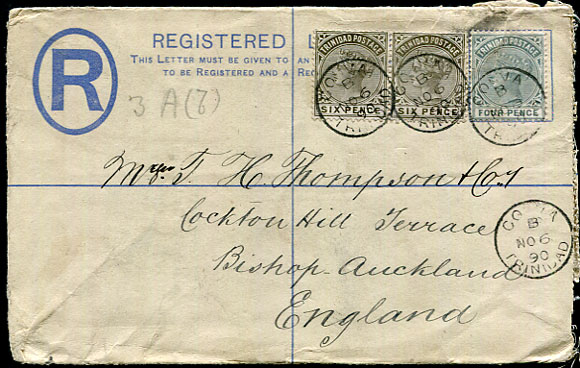 REGISTERED L
THIS LETTER MUST BE GIVEN TO AN
TO BE REGISTERED AND A REC
R
3 A(8)
TRINIDAD POSTAGE
SIX PENCE
TRINIDAD POSTAGE
SIX PENCE
TRINIDAD POSTAGE
FOUR PENCE
Messrs T. H. Thompson & Coy
Cockton Hill Terrace
Bishop Auckland
England
B
NO 6
90
TRINIDAD